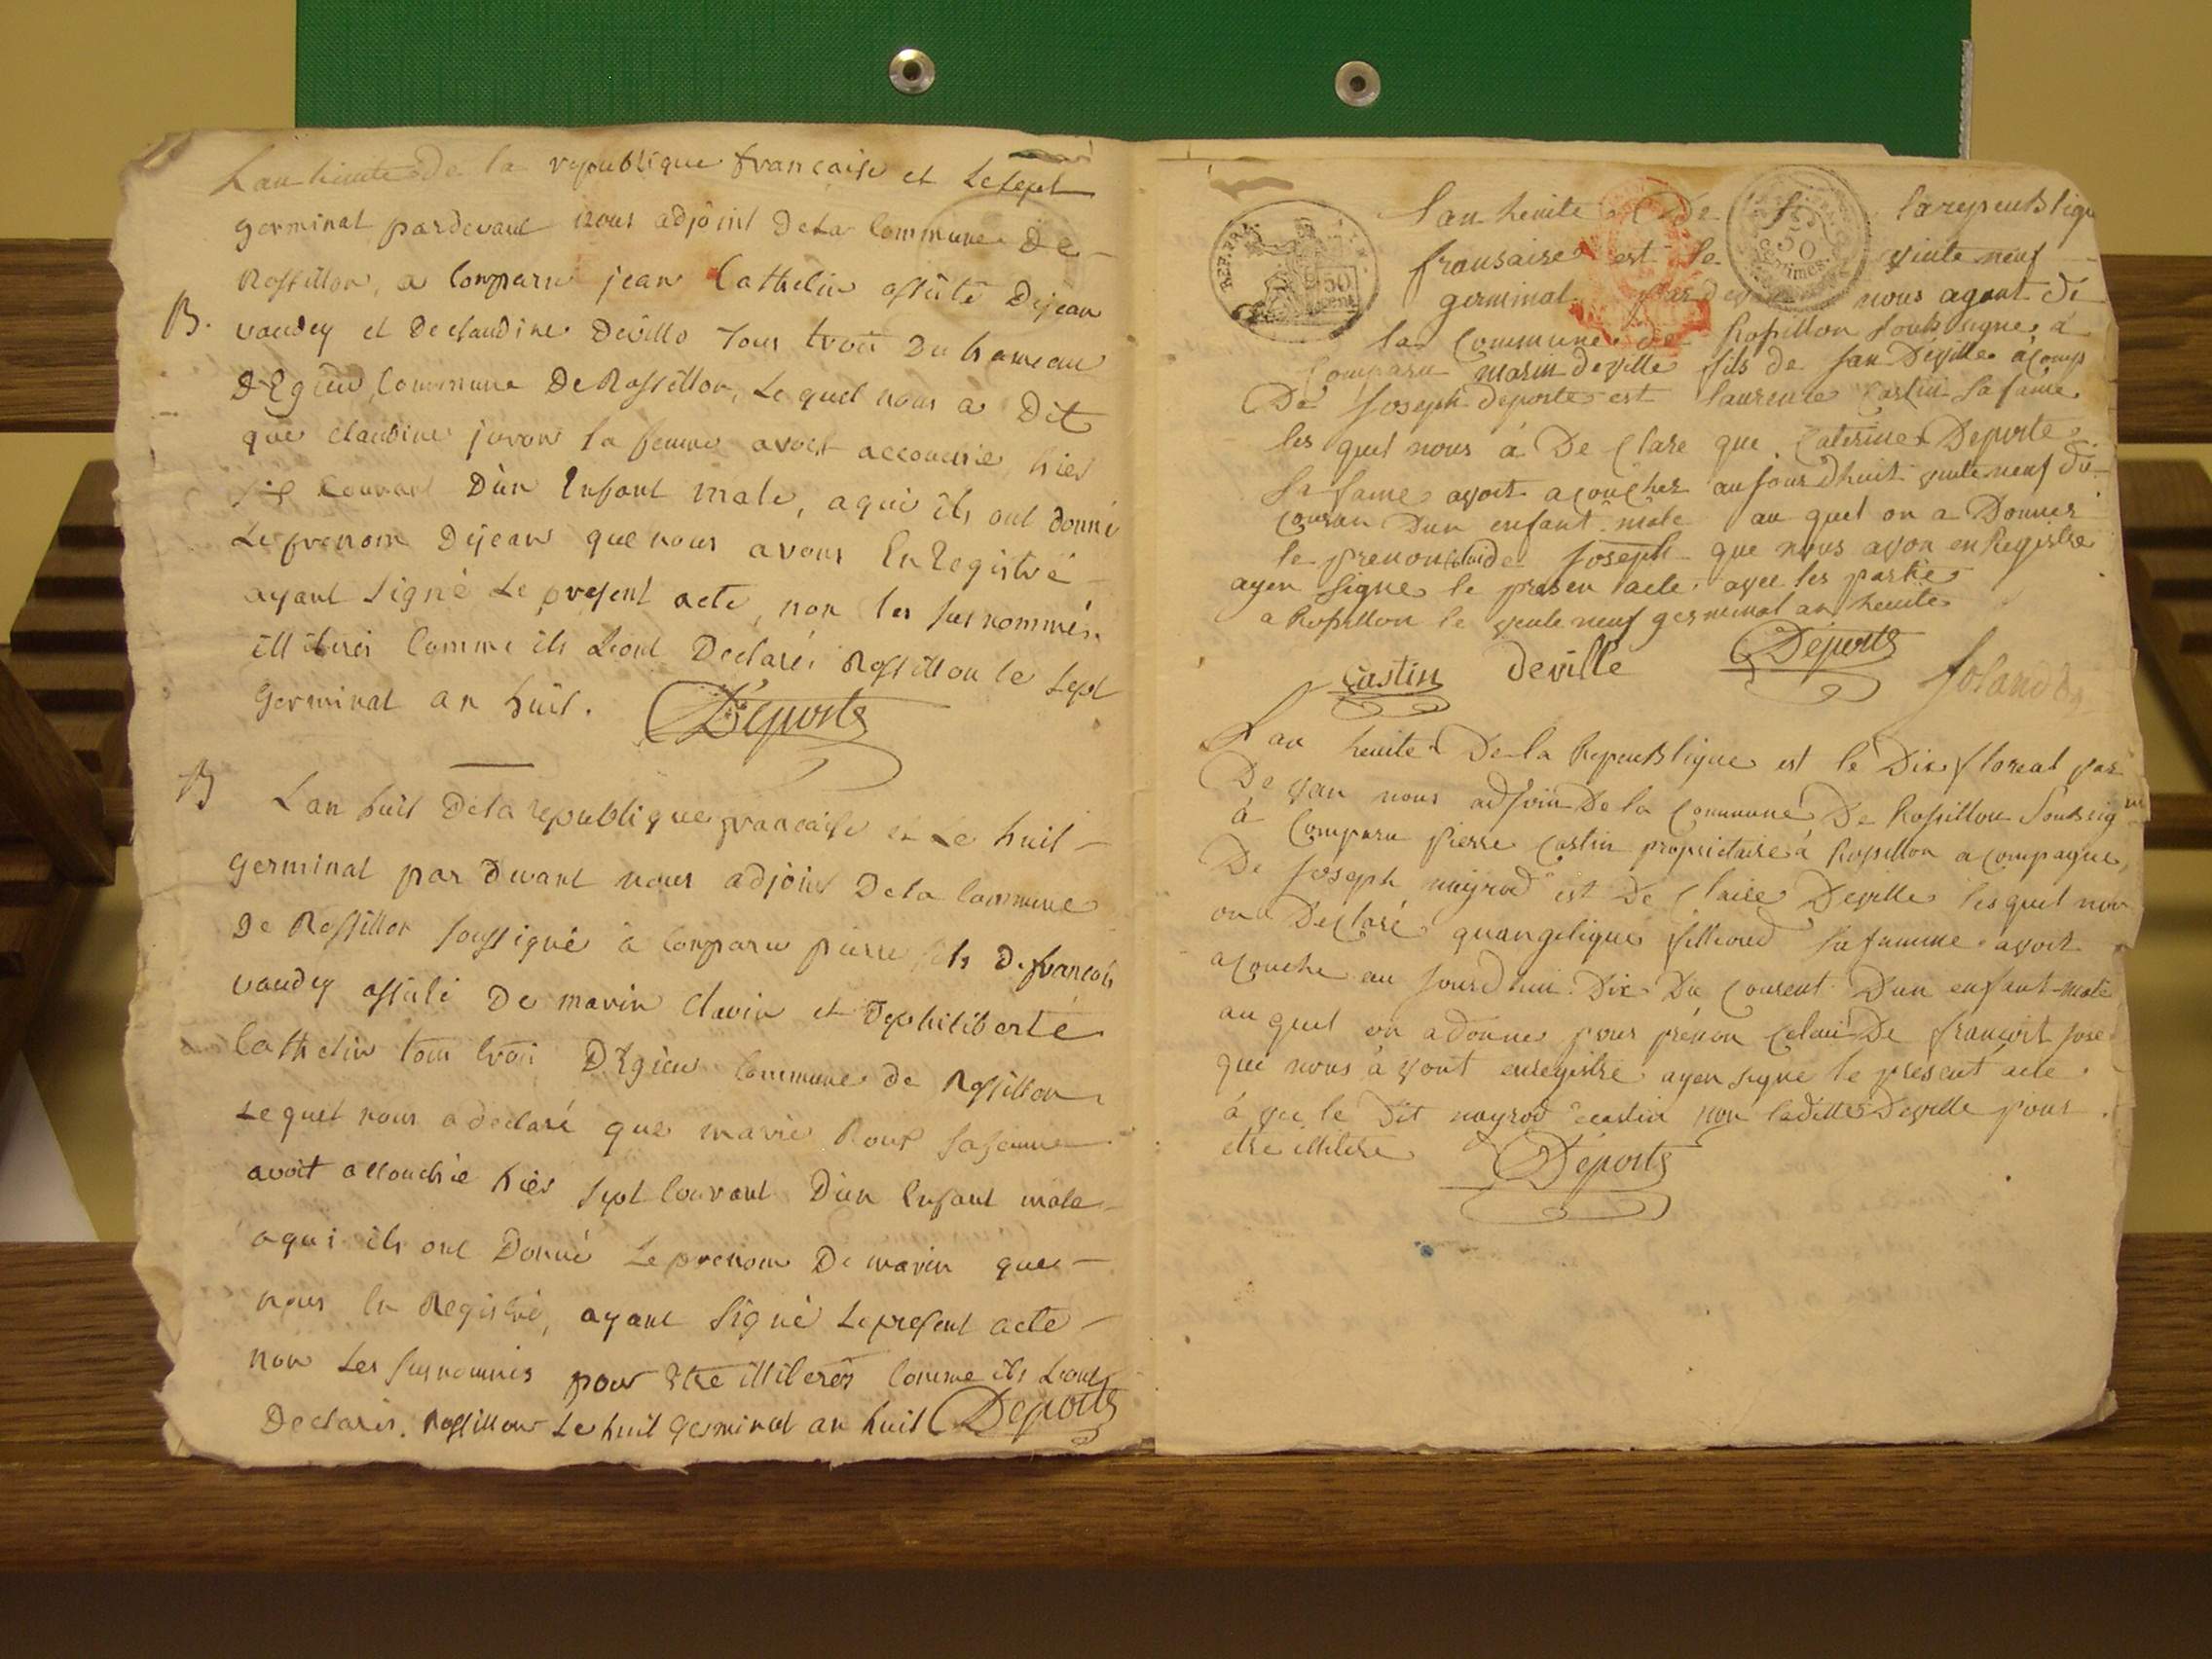 Lan huite de la republique francaise et le sept
germinal pardevant nous adjoint de la Commune de
Rossillon, a Comparu jean Cathelin assisté de jean
B. vaudey et de claudine deville tous trois du hameau
d'Egieu, Commune de Rossillon, Lequel nous a dit
que claudine juron sa femme avoit accouchié hier
six Courant d'un Enfant male, a qui ils ont donné
Le prenom de jean que nous avons EnRegistré
ayant Signé Le present acte, non les susnommés
illiterés Comme ils Lont Declarés Rossillon le sept
germinal an huit. Deporte
B Lan huit de la republique francaise et Le huit
germinal par devant nous adjoint de la Commune
de Rossillon soussigné a Comparu pierre fils de francois
vaudey assisté de marin clavin et de philiberte
Cathelin tous trois D'Egieu Commune de Rossillon
Lequel nous a declaré que marie Roux sa femme
avoit accouchié hier sept Courant d'un Enfant male
a qui ils ont Donné Le prenom De marin que
nous En Registré, ayant Signé Le present acte
non Les susnommés pour Etre illiterés Comme ils Lont
Declarés. Rossillon Le huit Germinal an huit Deporte
REP. FRA. 50 CENT.
50 centimes.
lan heuite de la repeublique
fransaise est le vinte neuf
germinal par devant nous agant de
la Commune de Rossillon soubsigne a
Comparu marin deville fils de Jan Deville acomp
De Joseph deporte est laurence Castin sa fame
les quel nous a De Clare que Caterine Deporte
sa fame avoit acoucher aujourdhuit vinte neuf du
couran Dun enfant male au quel on a Donner
le prenon celuide Joseph que nous avon enRegistre
ayen signe le presen acte avec les partie
a Rossillon le vente neuf germinal an heuite
Castin deville Deporte
Lan heuite De la Repeublique est le Dix floreal par
De van nous adjoin De la Commune De Rossillon Soubsigne
à Comparu Pierre Castin propriétaire a Rossillon acompagne
De Joseph mayrod est De Claire Deville lesquel nou
on Declaré quangelique sillioud sa femme avoit
acouche au jourdhui Dix Du Courent Dun enfant male
au quel on a donne pour prénon Celui De francoit Jose
que nous a vont enregistre ayen signe le present acte
à vec le Dit mayrod Castin non ladette Deville pour
etre illitere Deporte